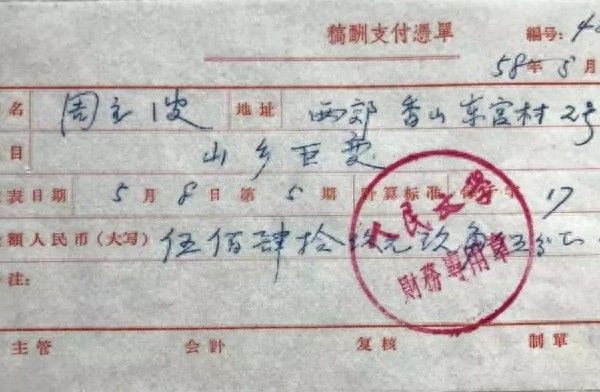 稿酬支付憑單
編号: 4
58 年 5 月
名 周立波 地址 西郊香山东宫村2号
目 山乡巨变
表日期 5 月 8 日 第 5 期 計算标准 千字 17
額人民币(大写) 伍佰肆拾玖元玖角五分正
注:
人民文学
財務專用章
主管 会計 复核 制單